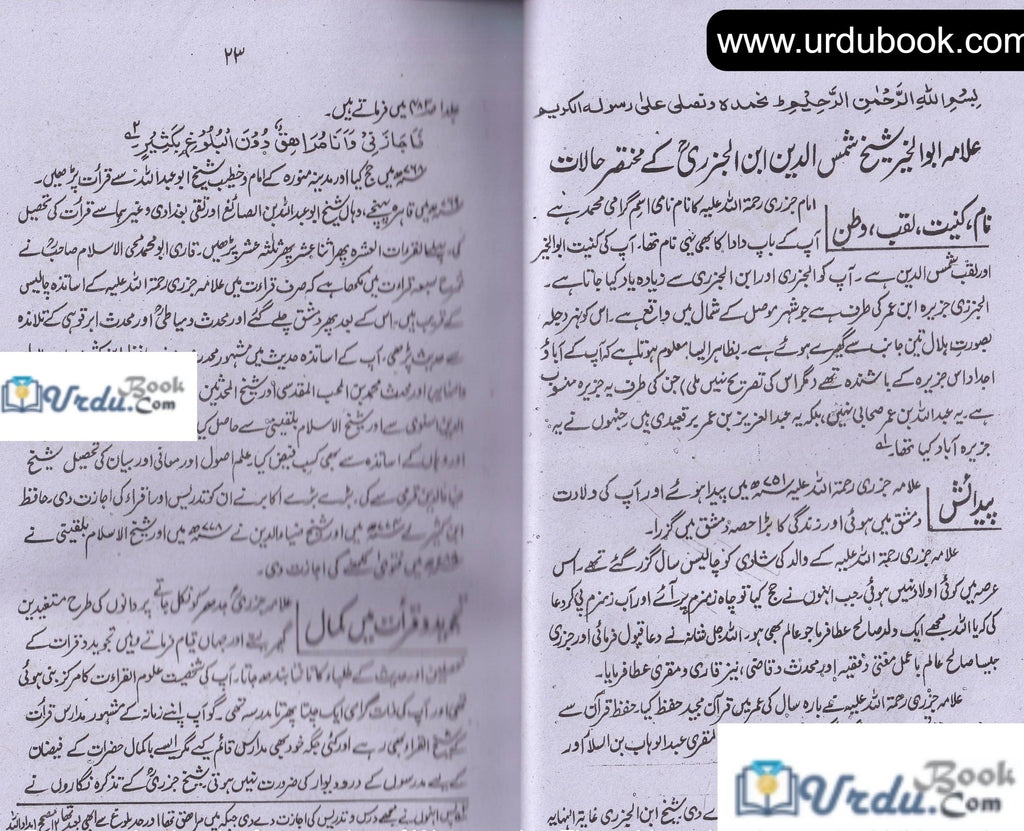 www.urdubook.com
بسم اللہ الرحمن الرحیم ط نحمدہ و نصلی علیٰ رسولہ الکریم
علامہ ابوالخیر شیخ شمس الدین ابن الجزریؒ کے مختصر حالات
نام، کنیت، لقب، وطن
امام جزری رحمۃ اللہ علیہ کا نام نامی اسم گرامی محمد ہے
آپ کے باپ دادا کا بھی یہی نام تھا۔ آپ کی کنیت ابوالخیر
اور لقب شمس الدین ہے۔ آپ کو الجزری اور ابن الجزری سے زیادہ یاد کیا جاتا ہے۔
الجزری جزیرہ ابن عمر کی طرف ہے جو شہر موصل کے شمال میں واقع ہے۔ اس کو نہر دجلہ
بصورت ہلال تین جانب سے گھیرے ہوئے ہے۔ بظاہر ایسا معلوم ہوتا ہے کہ آپ کے آباؤ
اجداد اس جزیرہ کے باشندہ تھے (مگر اس کی تصریح نہیں ملی) جن کی طرف یہ جزیرہ منسوب
ہے۔ یہ عبداللہ بن عمر صحابی نہیں، بلکہ یہ عبدالعزیز بن عمر ہیں جنہوں نے یہ
جزیرہ آباد کیا تھا۔
پیدائش
علامہ جزری رحمۃ اللہ علیہ ۷۵۱ھ میں پیدا ہوئے اور آپ کی ولادت
دمشق میں ہوئی اور زندگی کا بڑا حصہ دمشق میں گزرا۔
علامہ جزری رحمۃ اللہ علیہ کے والد کی شادی کو چالیس سال گزر گئے تھے۔ اس
عرصہ میں کوئی اولاد نہیں ہوئی جب انہوں نے حج کیا تو چاہ زمزم پر آئے اور آب زمزم پی کر دعا
کی کہ یا اللہ مجھے ایک ولد صالح عطا فرما جو عالم بھی ہو۔ اللہ جل شانہ نے دعا قبول فرمائی اور جزری
جیسا صالح عالم باعمل مفتی و فقیہ اور محدث و قاضی، نیز قاری و مقری عطا فرمایا۔
علامہ جزری رحمۃ اللہ علیہ نے بارہ سال کی عمر میں قرآن مجید حفظ کیا۔ حفظ قرآن سے
مقری عبدالوہاب بن السلار اور
دے دی شیخ ابن الجزری غایۃ النہایہ
Urdu Book .Com
۲۳
میں فرماتے ہیں۔
فَاَجَازَنِیْ وَاَنَا مُرَاھِقٌ دُوْنَ الْبُلُوْغِ بِکَثِیْرٍ
۷۶۸ھ میں حج کیا اور مدینہ منورہ کے امام و خطیب شیخ ابو عبداللہ سے قرأت پڑھیں۔
میں قاہرہ پہنچے، وہاں شیخ ابو عبداللہ بن الصائغ اور تقی بغدادی وغیرہما سے قرأت کی تحصیل
کی۔ پہلے القراءات العشرہ پھر اثنا عشر پھر ثلثہ عشر پڑھیں۔ قاری ابو محمد محی الاسلام صاحبؒ نے
شرح سبعہ قراءت میں لکھا ہے کہ صرف قراءت میں علامہ جزری رحمۃ اللہ علیہ کے اساتذہ چالیس
کے قریب ہیں۔ اس کے بعد پھر دمشق چلے گئے اور محدث دمیاطیؒ اور محدث ابرقوہی کے تلامذہ
سے حدیث پڑھی، آپ کے اساتذہ حدیث میں مشہور محدث
اور محدث محمد بن المحب المقدسی اور شیخ المحدثین
اور شیخ الاسلام بلقینی سے حاصل
اور وہاں کے اساتذہ سے بھی کسب فیض کیا۔ علم اصول اور معانی اور بیان کی تحصیل شیخ
ضیاء الدین قرمی سے کی۔ بڑے بڑے اکابر نے ان کو تدریس اور اقراء کی اجازت دی۔ حافظ
ابن کثیر نے میں اور شیخ ضیاء الدین نے ۷۷۸ھ میں اور شیخ الاسلام بلقینی نے
میں فتویٰ لکھنے کی اجازت دی۔
تجوید و قرأت میں کمال
علامہ جزریؒ جدھر کو نکل جاتے پروانوں کی طرح مستفیدین
گھیر لیتے اور جہاں قیام فرماتے وہیں تجوید و قرات کے
اور حدیث کے طلباء کا تانتا بندھ جاتا۔ آپ کی شخصیت علوم القراءت کا مرکز بنی ہوئی
تھی اور آپ کی ذات گرامی ایک چلتا پھرتا مدرسہ تھی۔ گو آپ اپنے زمانہ کے مشہور مدارس قرات
کے شیخ القراء بھی رہے اور کئی جگہ خود بھی مدارس قائم کیے مگر ایسے باکمال حضرات کے فیضان
کے لیے مدرسوں کے در و دیوار کی ضرورت نہیں ہوتی۔ شیخ جزریؒ کے تذکرہ نگاروں نے
پس انہوں نے مجھے درس و تدریس کی اجازت دے دی جبکہ میں مراہق تھا اور حد بلوغ سے ابھی بعد تھا
Urdu Book .Com